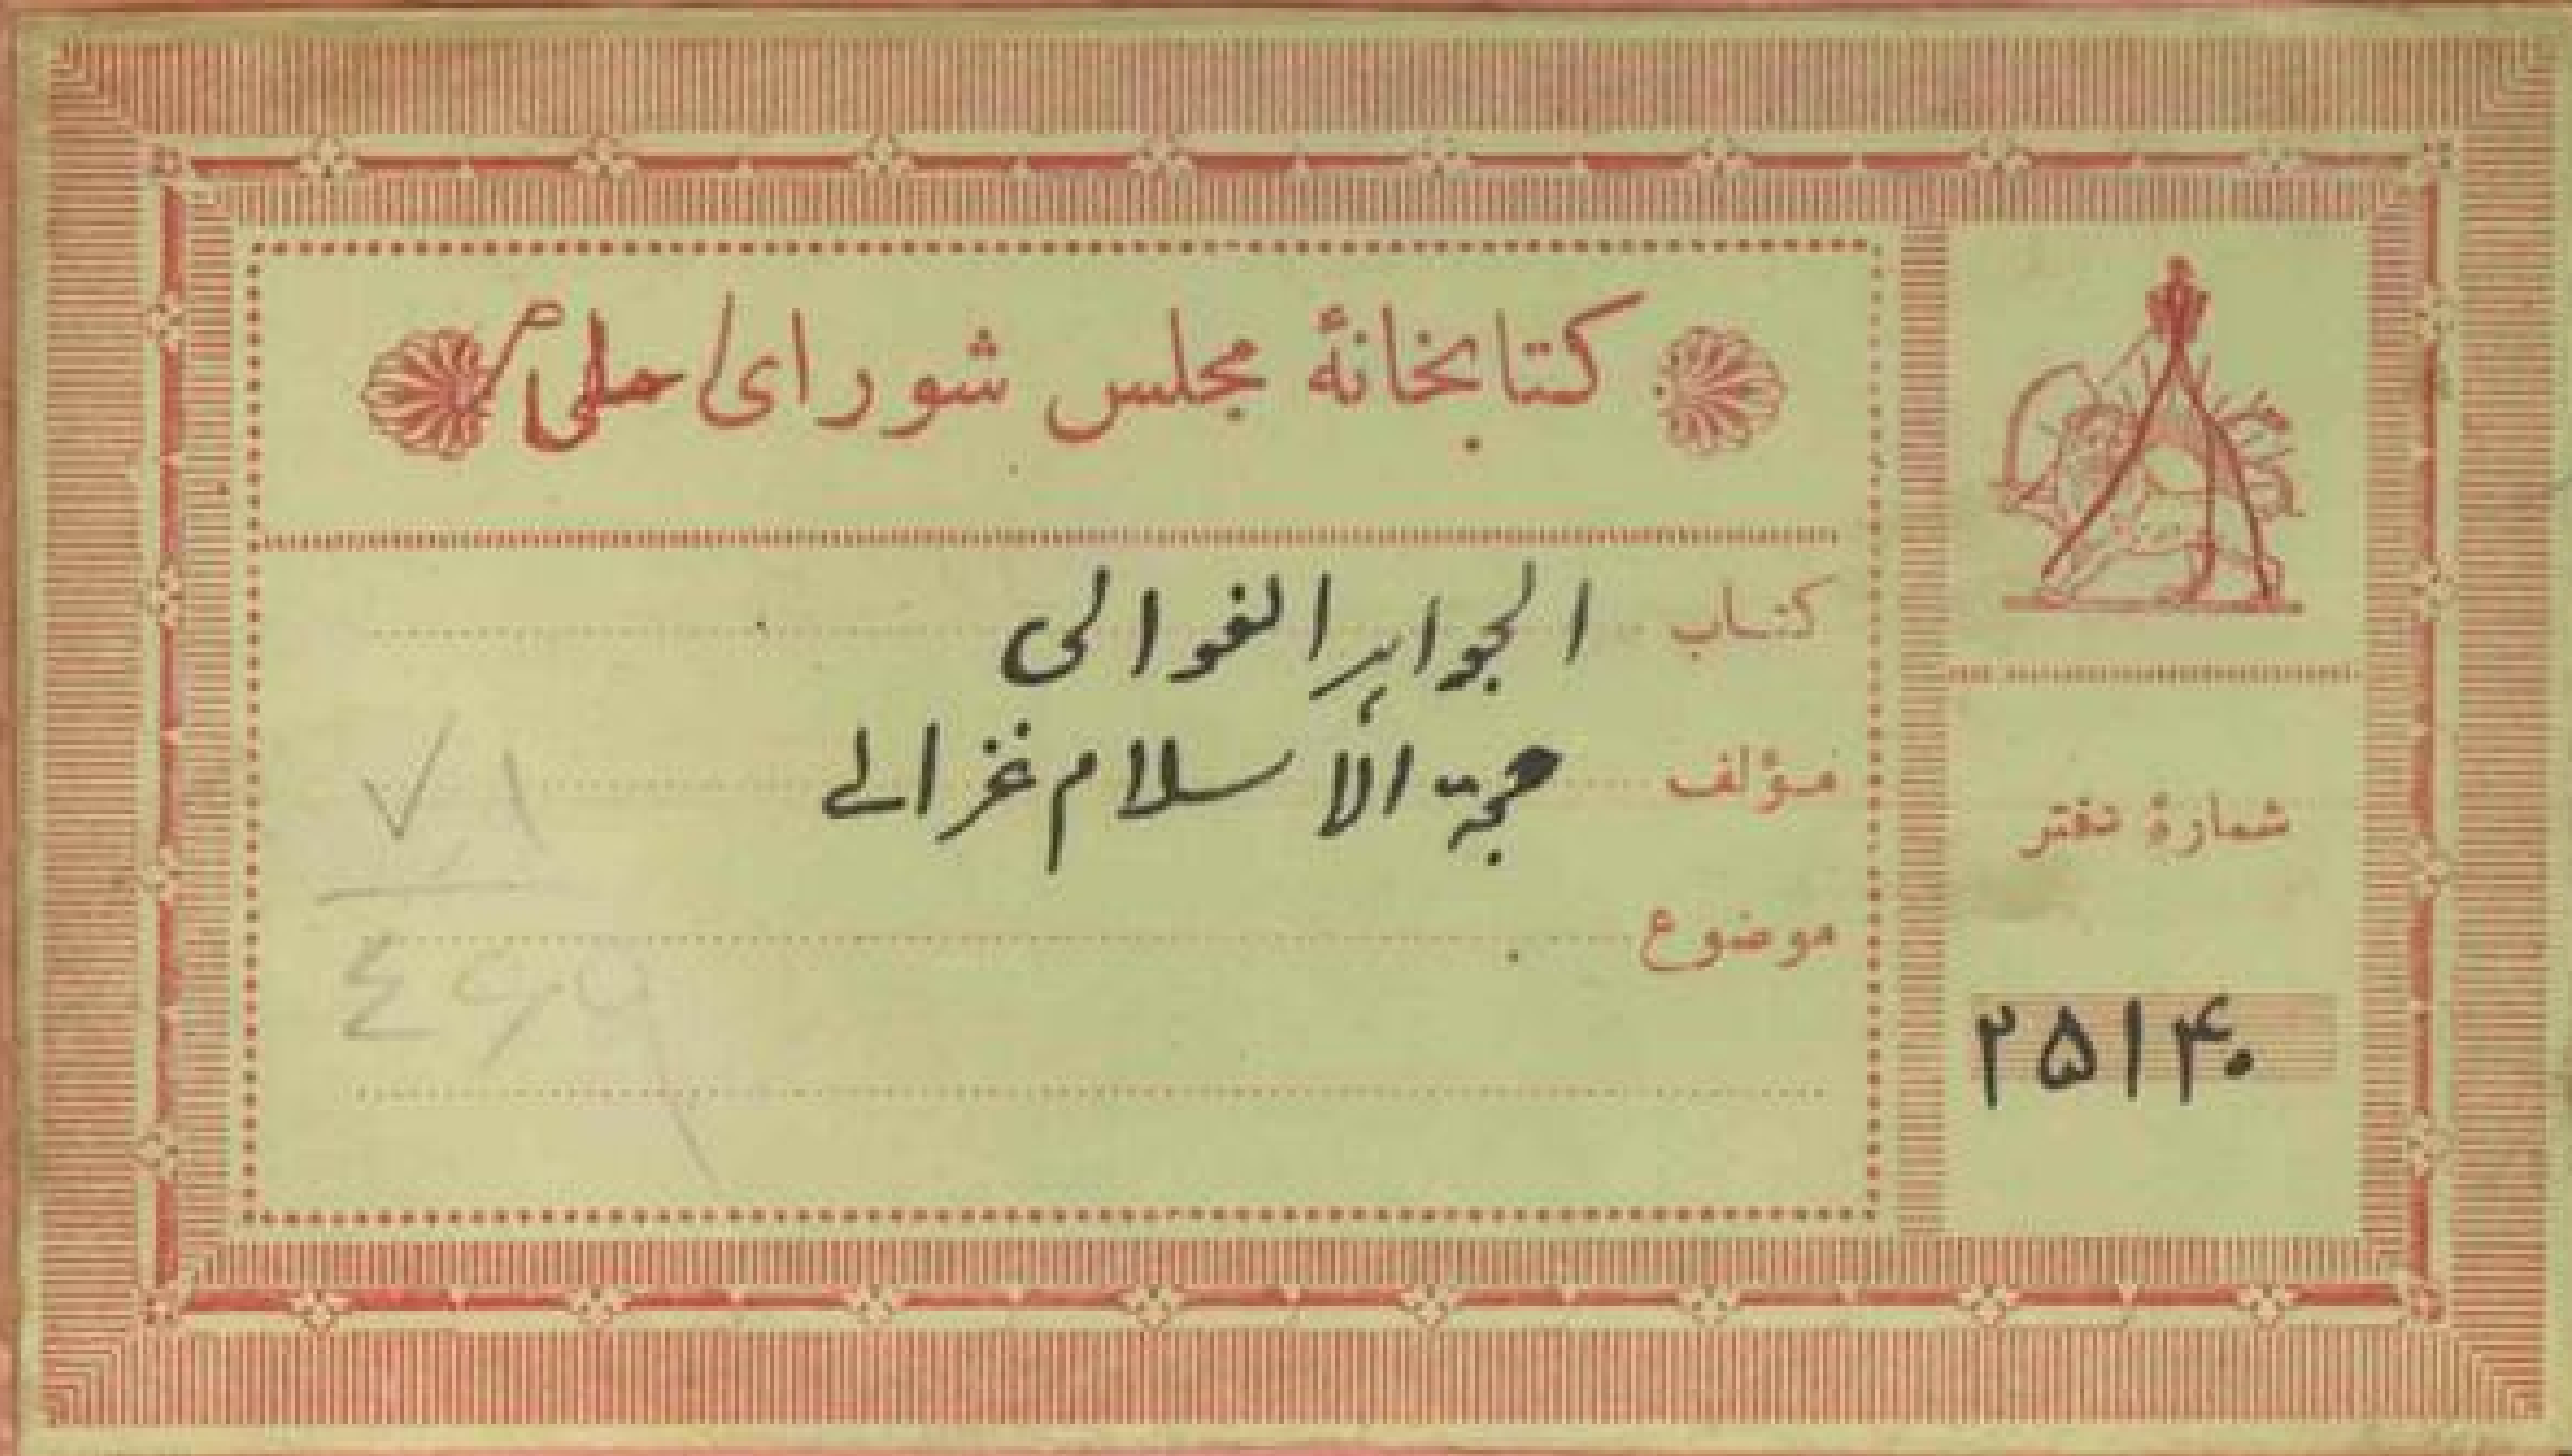 کتابخانهٔ مجلس شورای ملی
کتاب الجواهر الغوالی
مؤلف حجة الاسلام غزالی
موضوع
شمارهٔ دفتر
۲۵۱۴۰
۷۱